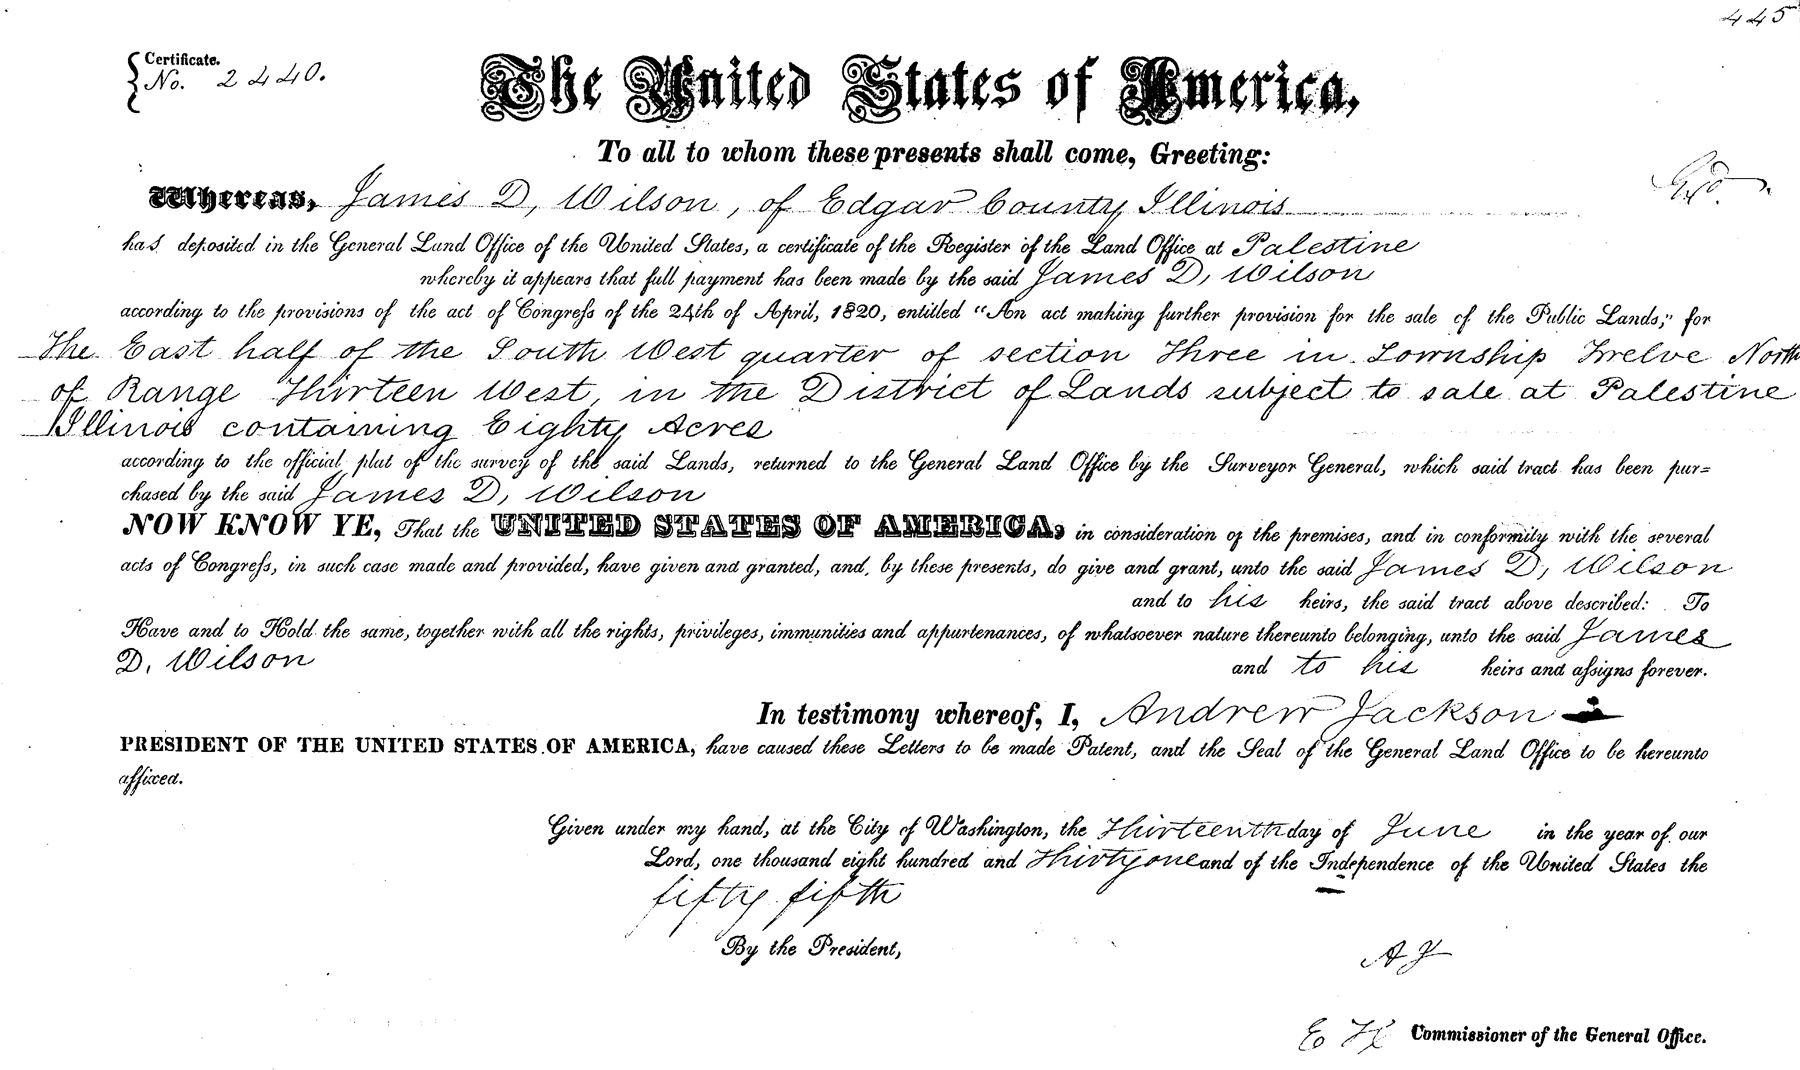 445
Certificate.
No. 2440.
The United States of America,
To all to whom these presents shall come, Greeting:
Whereas, James D, Wilson, of Edgar County Illinois
has deposited in the General Land Office of the United States, a certificate of the Register of the Land Office at Palestine
whereby it appears that full payment has been made by the said James D, Wilson
according to the provisions of the act of Congress of the 24th of April, 1820, entitled "An act making further provision for the sale of the Public Lands," for
The East half of the South West quarter of section Three in Township Twelve North
of Range Thirteen West, in the District of Lands subject to sale at Palestine
Illinois containing Eighty Acres
according to the official plat of the survey of the said Lands, returned to the General Land Office by the Surveyor General, which said tract has been pur=
chased by the said James D, Wilson
NOW KNOW YE, That the UNITED STATES OF AMERICA, in consideration of the premises, and in conformity with the several
acts of Congress, in such case made and provided, have given and granted, and, by these presents, do give and grant, unto the said James D, Wilson
and to his heirs, the said tract above described: To
Have and to Hold the same, together with all the rights, privileges, immunities and appurtenances, of whatsoever nature thereunto belonging, unto the said James
D. Wilson and to his heirs and assigns forever.
In testimony whereof, I, Andrew Jackson
PRESIDENT OF THE UNITED STATES OF AMERICA, have caused these Letters to be made Patent, and the Seal of the General Land Office to be hereunto
affixed.
Given under my hand, at the City of Washington, the Thirteenth day of June in the year of our
Lord, one thousand eight hundred and Thirty one and of the Independence of the United States the
fifty fifth
By the President,
A J
Commissioner of the General Office.